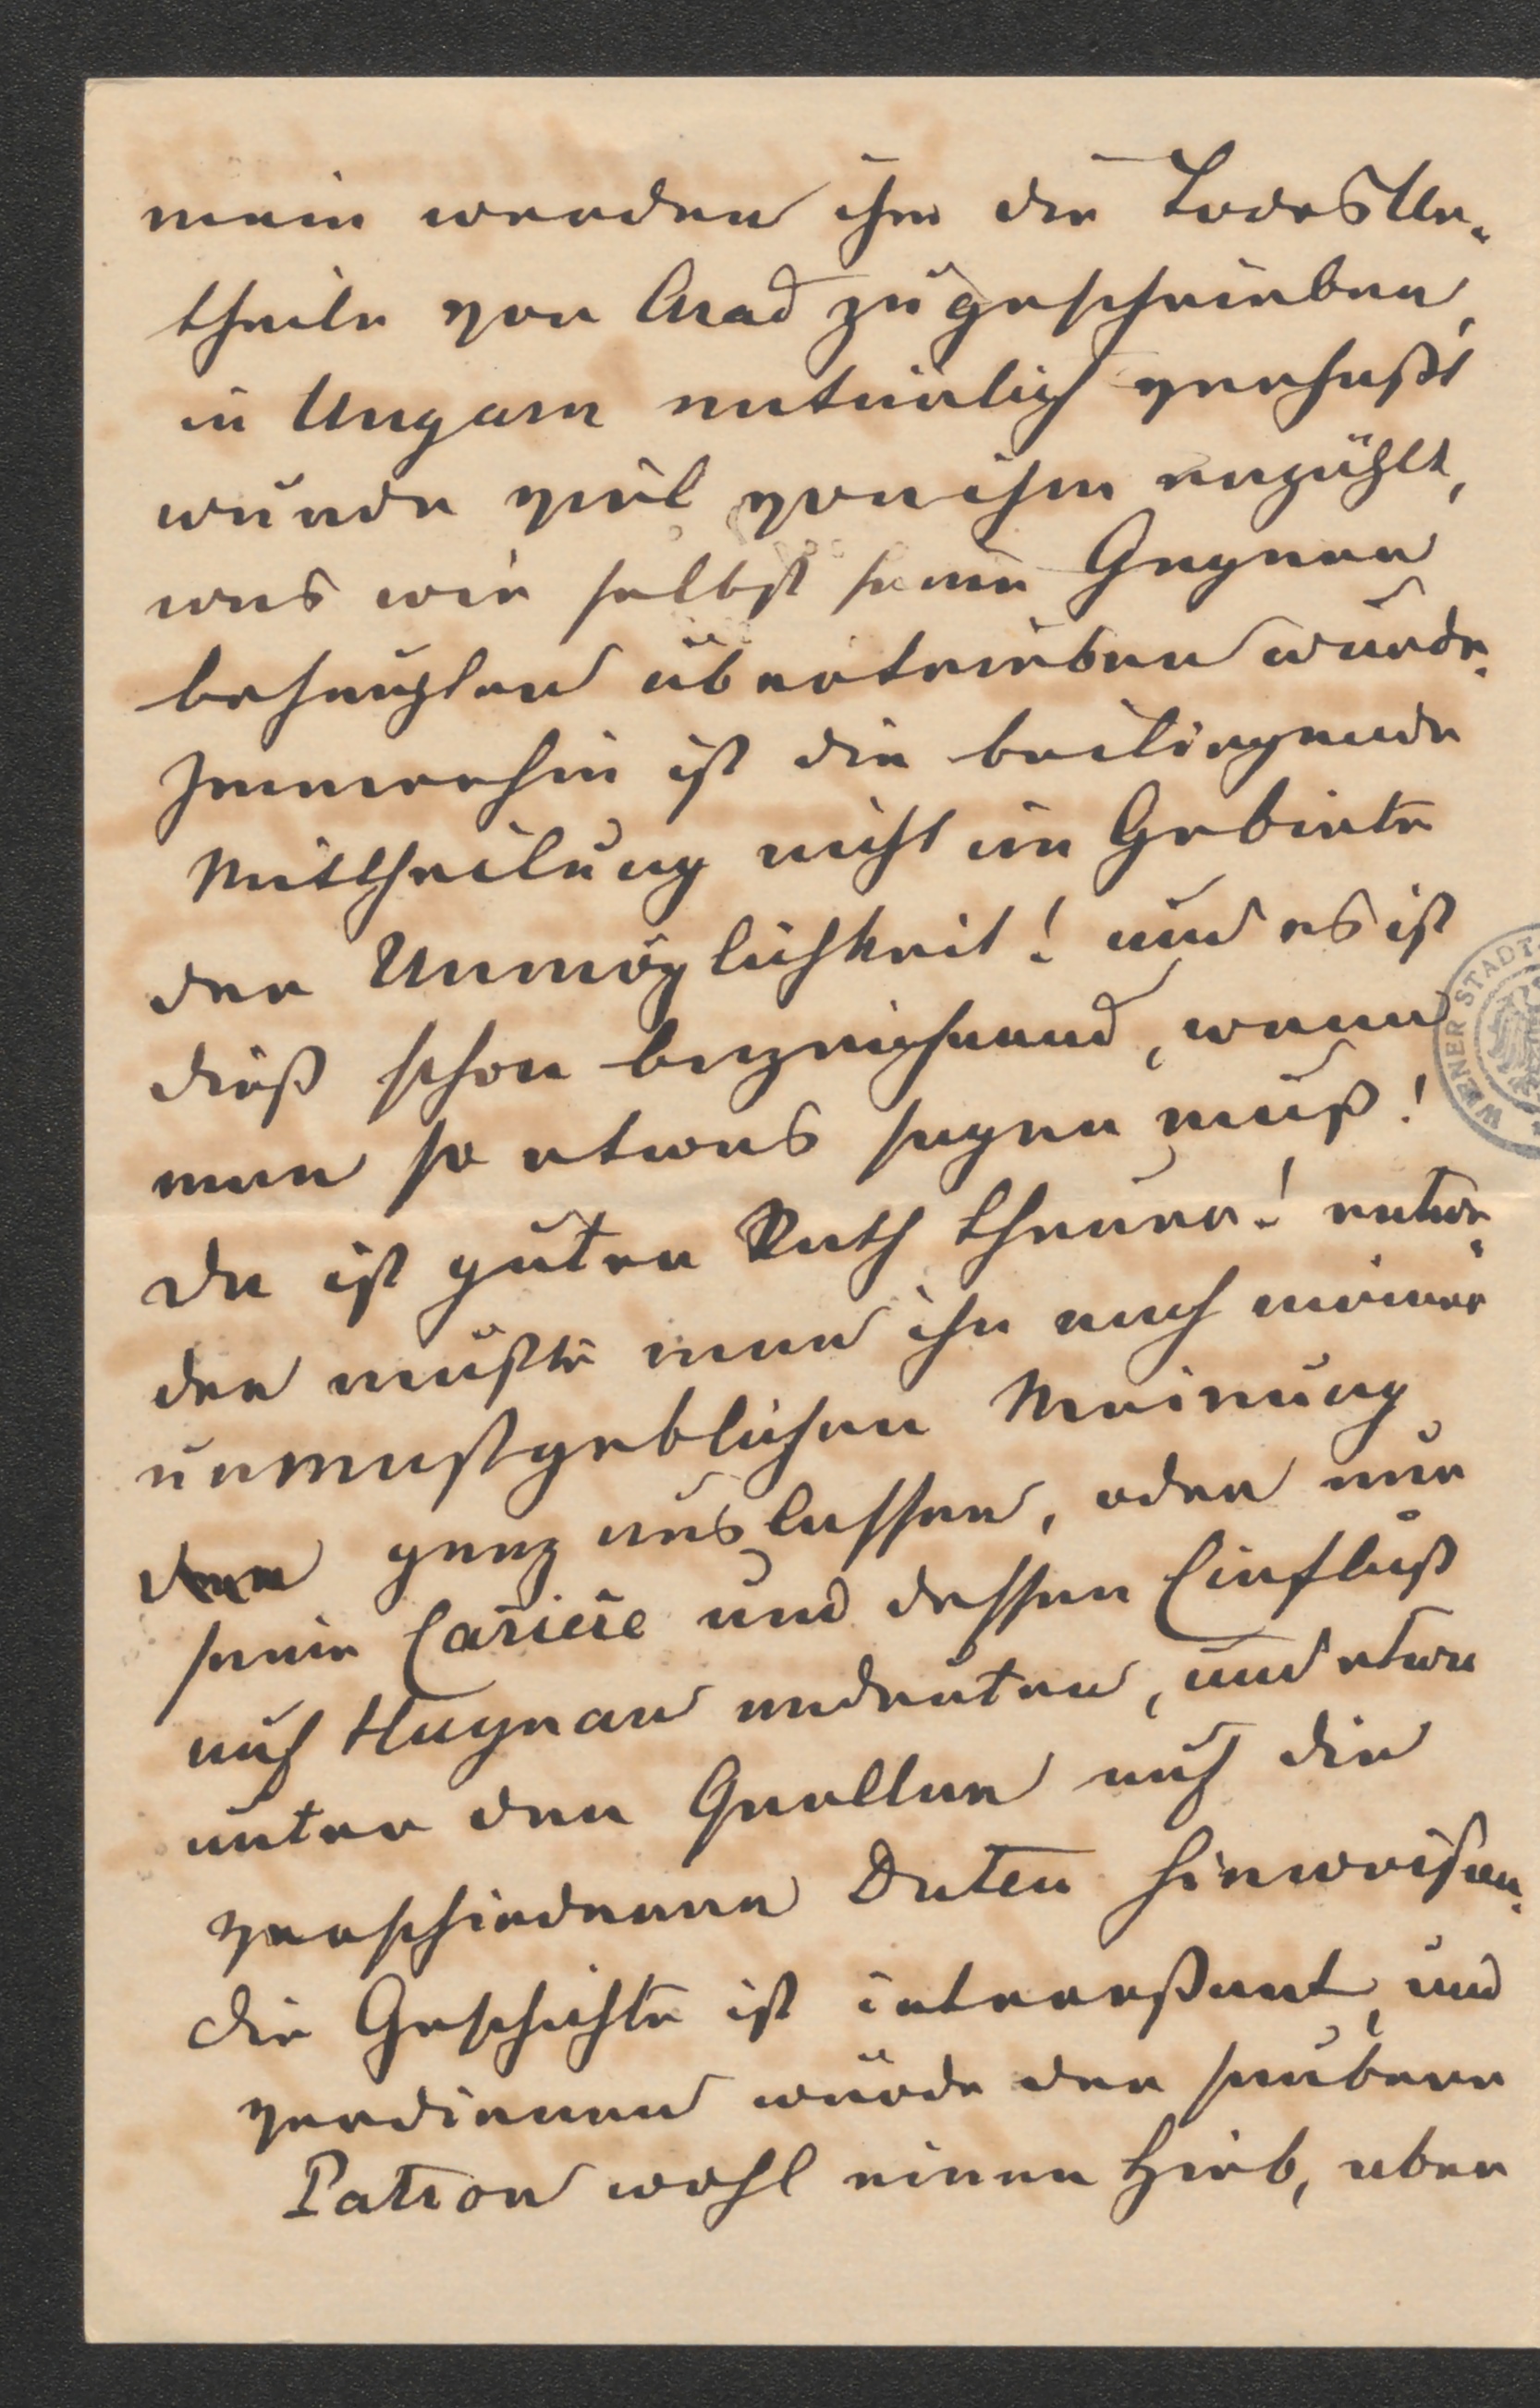 mein werden ihm die TodesUr-
theile von Arad zugeschrieben,
in Ungarn natürlich verhaßt
wurde viel von ihm erzählt,
was wie selbst seine Gegner
behaupten übertrieben wurde.
Immerhin ist die beiliegende
Mittheilung nicht im Gebiete
der Unmöglichkeit! und es ist
dieß schon bezeichnend, wenn
man so etwas sagen muß!
Da ist guter Rath theuer! entwe-
der müßte man ihn nach meiner
unmaßgeblichen Meinung
ganz auslassen, oder nur
seine Cariere und dessen Einfluß
auf Haynau andeuten, und etwa
unter den Quellen auf die
verschiedenen Daten hinweisen.
die Geschichte ist interessant, und
verdienen würde der saubere
Patron wohl einen Hieb, aber
WIENER STADT